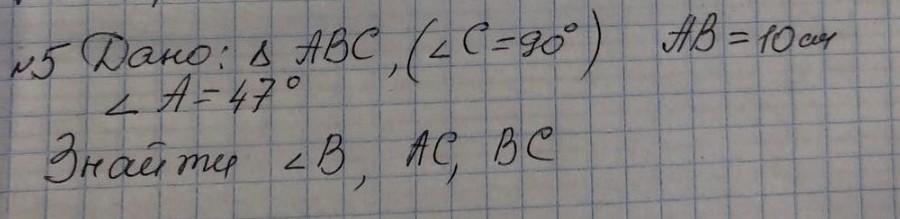 №5 Дано: Δ ABC, (∠C=90°) AB=10см
∠A=47°
Знайти ∠B, AC, BC